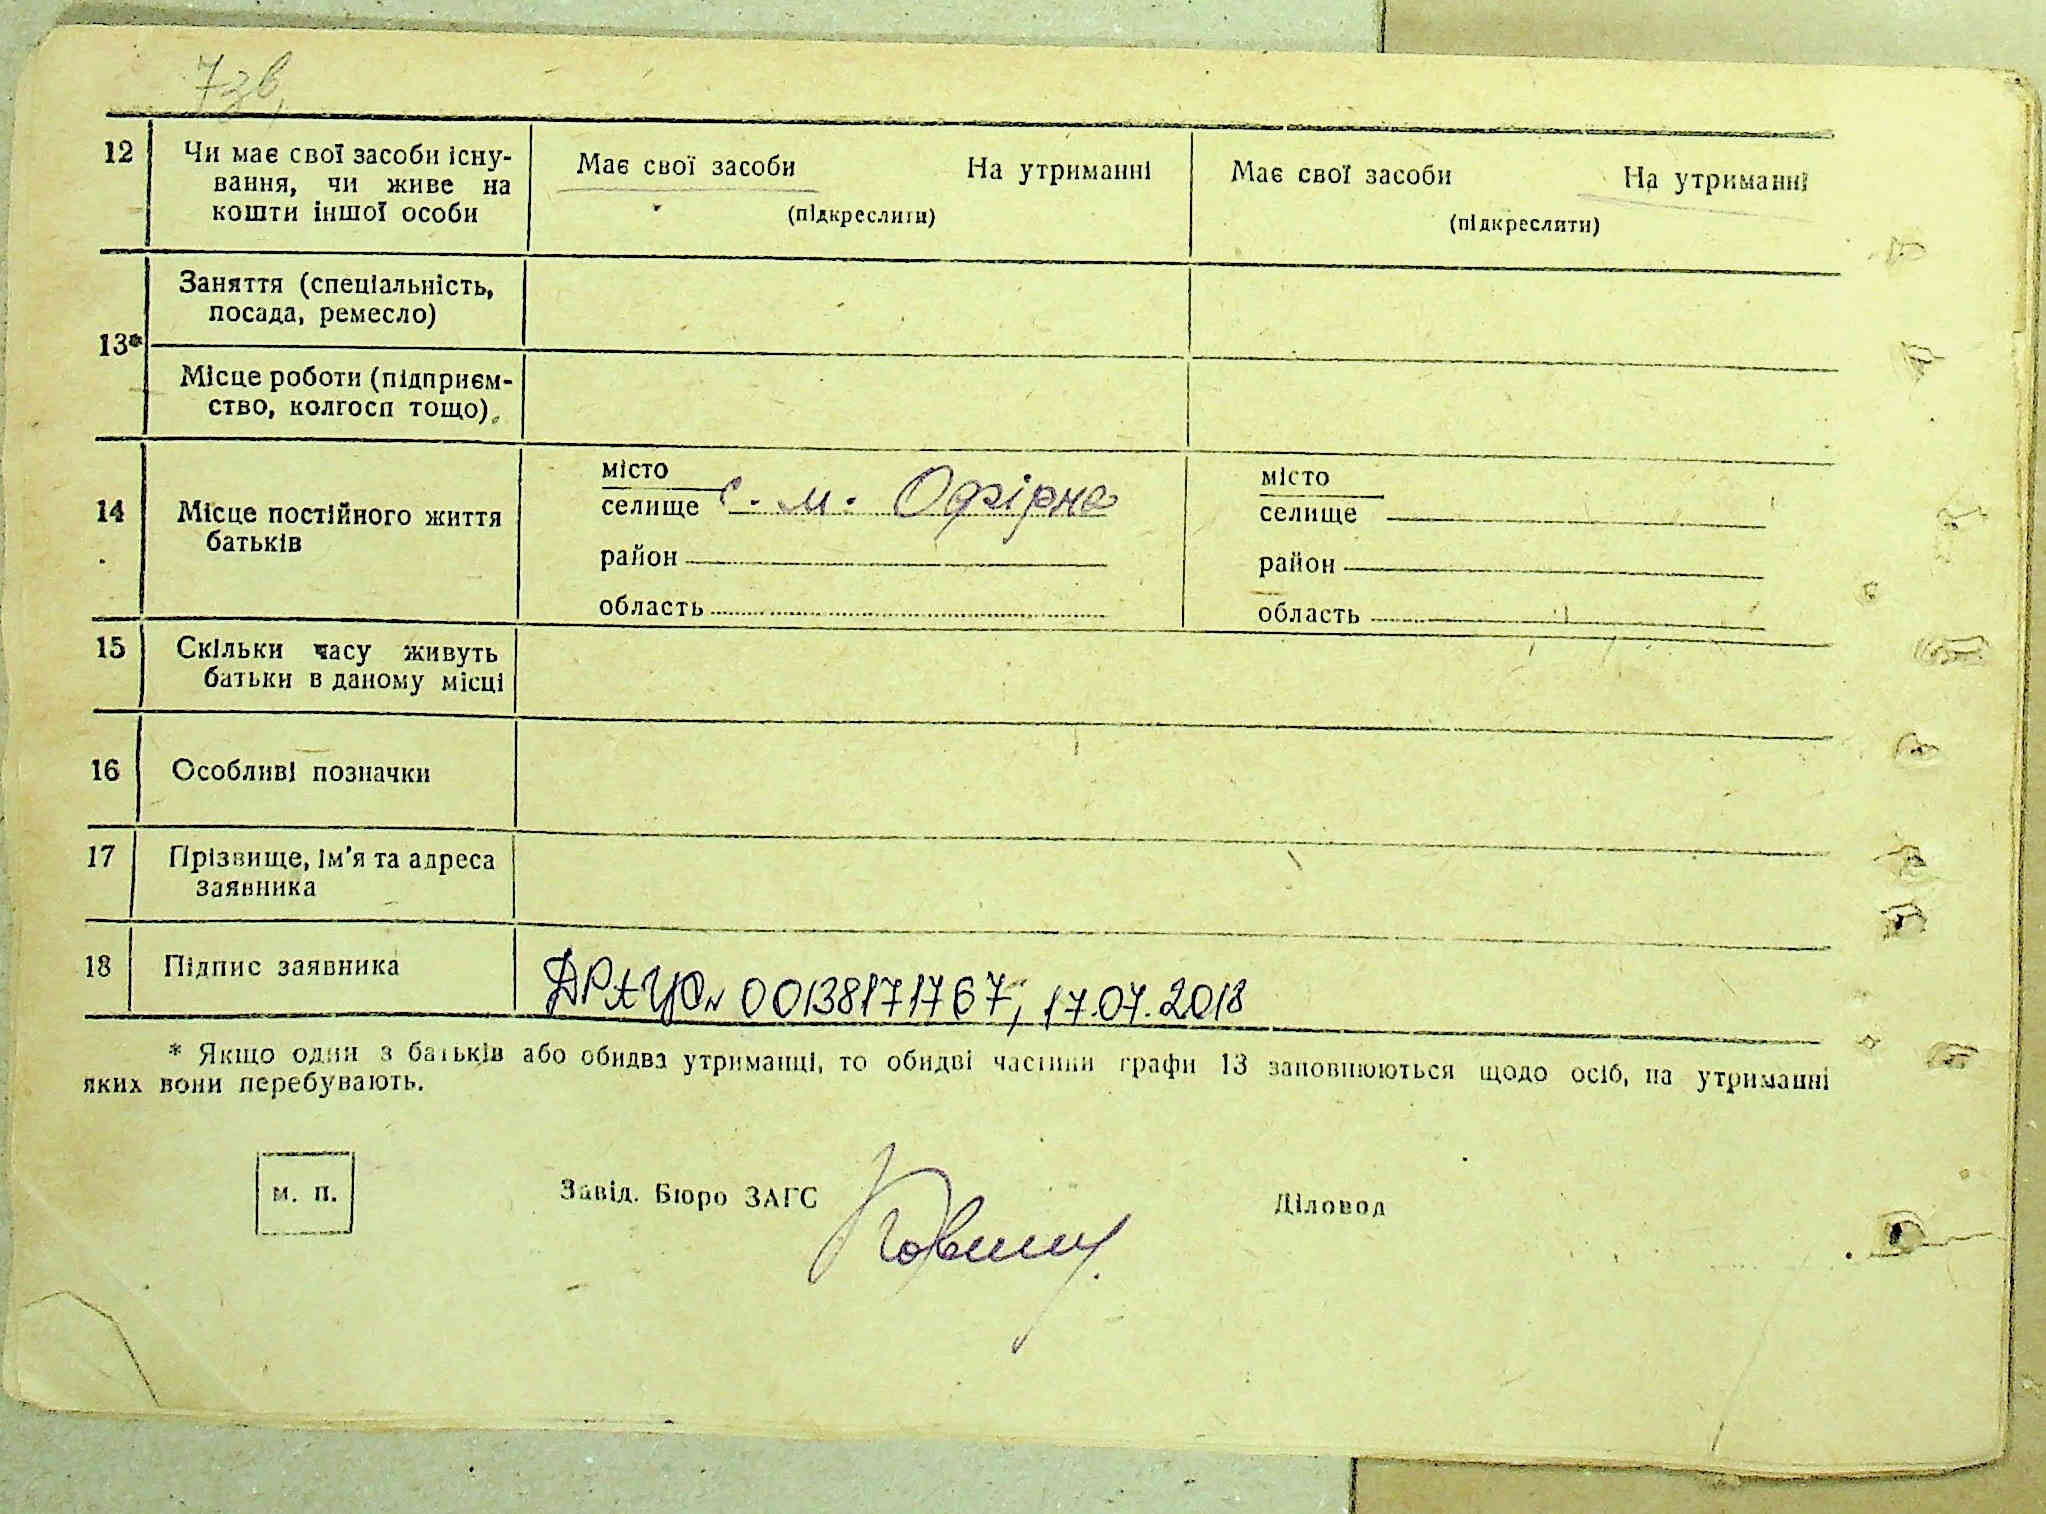 7зв.
12 Чи має свої засоби існу-
вання, чи живе на
кошти іншої особи
Має свої засоби На утриманні
(підкреслити)
Має свої засоби На утриманні
(підкреслити)
13*
Заняття (спеціальність,
посада, ремесло)
Місце роботи (підприєм-
ство, колгосп тощо).
14 Місце постійного життя
батьків
місто
селище с. м. Офірна
район
область
місто
селище
район
область
15 Скільки часу живуть
батьки в даному місці
16 Особливі позначки
17 Прізвище, ім'я та адреса
заявника
18 Підпис заявника
ДРАЦС 00138171767, 17.07.2018
* Якщо один з батьків або обидва утриманці, то обидві частини графи 13 заповнюються щодо осіб, на утриманні
яких вони перебувають.
м. п.
Завід. Бюро ЗАГС
Діловод